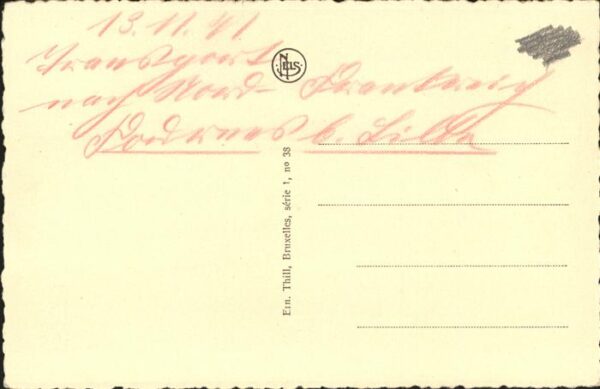 13.11.41
Transport
nach Nord- Frankreich
b. Lille
NELS
Ern. Thill, Bruxelles, série 1, nº 38